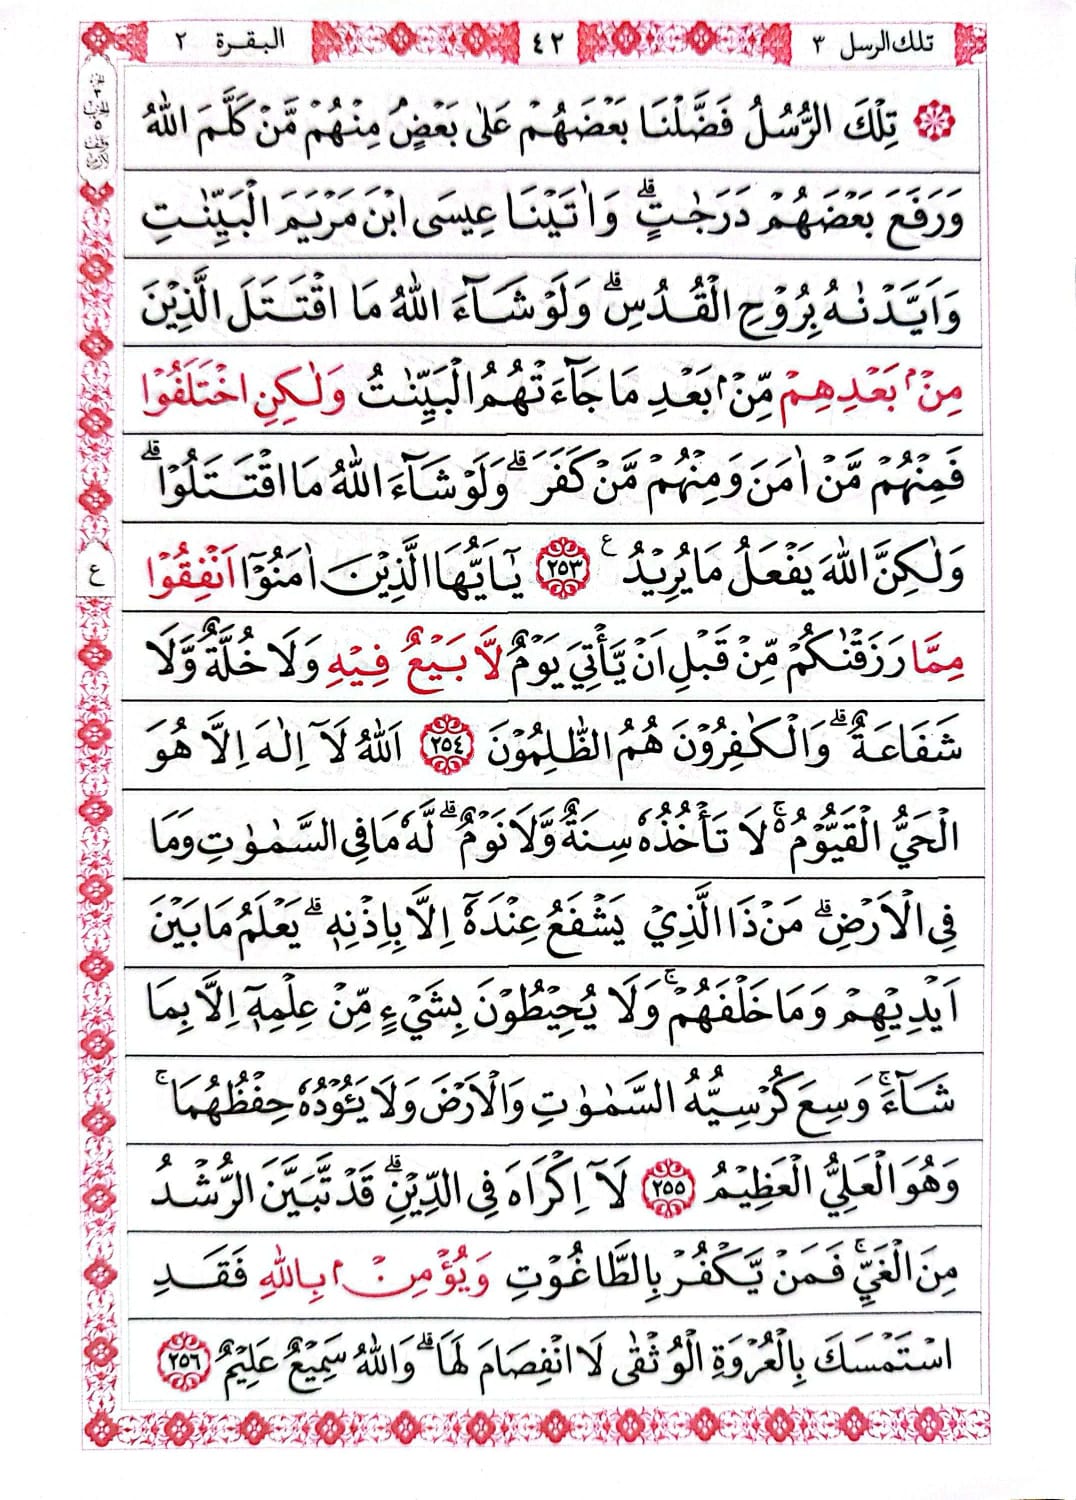 تلك الرسل ٣ ٤٢ البقرة ٢
تِلْكَ الرُّسُلُ فَضَّلْنَا بَعْضَهُمْ عَلٰى بَعْضٍ ۘ مِنْهُمْ مَّنْ كَلَّمَ اللّٰهُ
وَرَفَعَ بَعْضَهُمْ دَرَجٰتٍ ؕ وَاٰتَيْنَا عِيسَى ابْنَ مَرْيَمَ الْبَيِّنٰتِ
وَاَيَّدْنٰهُ بِرُوْحِ الْقُدُسِ ؕ وَلَوْ شَآءَ اللّٰهُ مَا اقْتَتَلَ الَّذِيْنَ
مِنْۢ بَعْدِهِمْ مِّنْۢ بَعْدِ مَا جَآءَتْهُمُ الْبَيِّنٰتُ وَلٰكِنِ اخْتَلَفُوْا
فَمِنْهُمْ مَّنْ اٰمَنَ وَمِنْهُمْ مَّنْ كَفَرَ ۗ وَلَوْ شَآءَ اللّٰهُ مَا اقْتَتَلُوْا ۗ
وَلٰكِنَّ اللّٰهَ يَفْعَلُ مَا يُرِيْدُ ع ٢٥٣ يٰٓاَيُّهَا الَّذِيْنَ اٰمَنُوْٓا اَنْفِقُوْا
مِمَّا رَزَقْنٰكُمْ مِّنْ قَبْلِ اَنْ يَّأْتِيَ يَوْمٌ لَّا بَيْعٌ فِيْهِ وَلَا خُلَّةٌ وَّلَا
شَفَاعَةٌ ۗ وَالْكٰفِرُوْنَ هُمُ الظّٰلِمُوْنَ ٢٥٤ اَللّٰهُ لَآ اِلٰهَ اِلَّا هُوَ
الْحَيُّ الْقَيُّوْمُ ۚ لَا تَأْخُذُهٗ سِنَةٌ وَّلَا نَوْمٌ ۗ لَهٗ مَا فِى السَّمٰوٰتِ وَمَا
فِى الْاَرْضِ ۗ مَنْ ذَا الَّذِيْ يَشْفَعُ عِنْدَهٗٓ اِلَّا بِاِذْنِهٖ ۗ يَعْلَمُ مَا بَيْنَ
اَيْدِيْهِمْ وَمَا خَلْفَهُمْ ۚ وَلَا يُحِيْطُوْنَ بِشَيْءٍ مِّنْ عِلْمِهٖٓ اِلَّا بِمَا
شَآءَ ۚ وَسِعَ كُرْسِيُّهُ السَّمٰوٰتِ وَالْاَرْضَ وَلَا يَـُٔوْدُهٗ حِفْظُهُمَا ۚ
وَهُوَ الْعَلِيُّ الْعَظِيْمُ ٢٥٥ لَآ اِكْرَاهَ فِى الدِّيْنِ ۗ قَدْ تَّبَيَّنَ الرُّشْدُ
مِنَ الْغَيِّ ۚ فَمَنْ يَّكْفُرْ بِالطَّاغُوْتِ وَيُؤْمِنْۢ بِاللّٰهِ فَقَدِ
اسْتَمْسَكَ بِالْعُرْوَةِ الْوُثْقٰى لَا انْفِصَامَ لَهَا ۗ وَاللّٰهُ سَمِيْعٌ عَلِيْمٌ ٢٥٦
ع